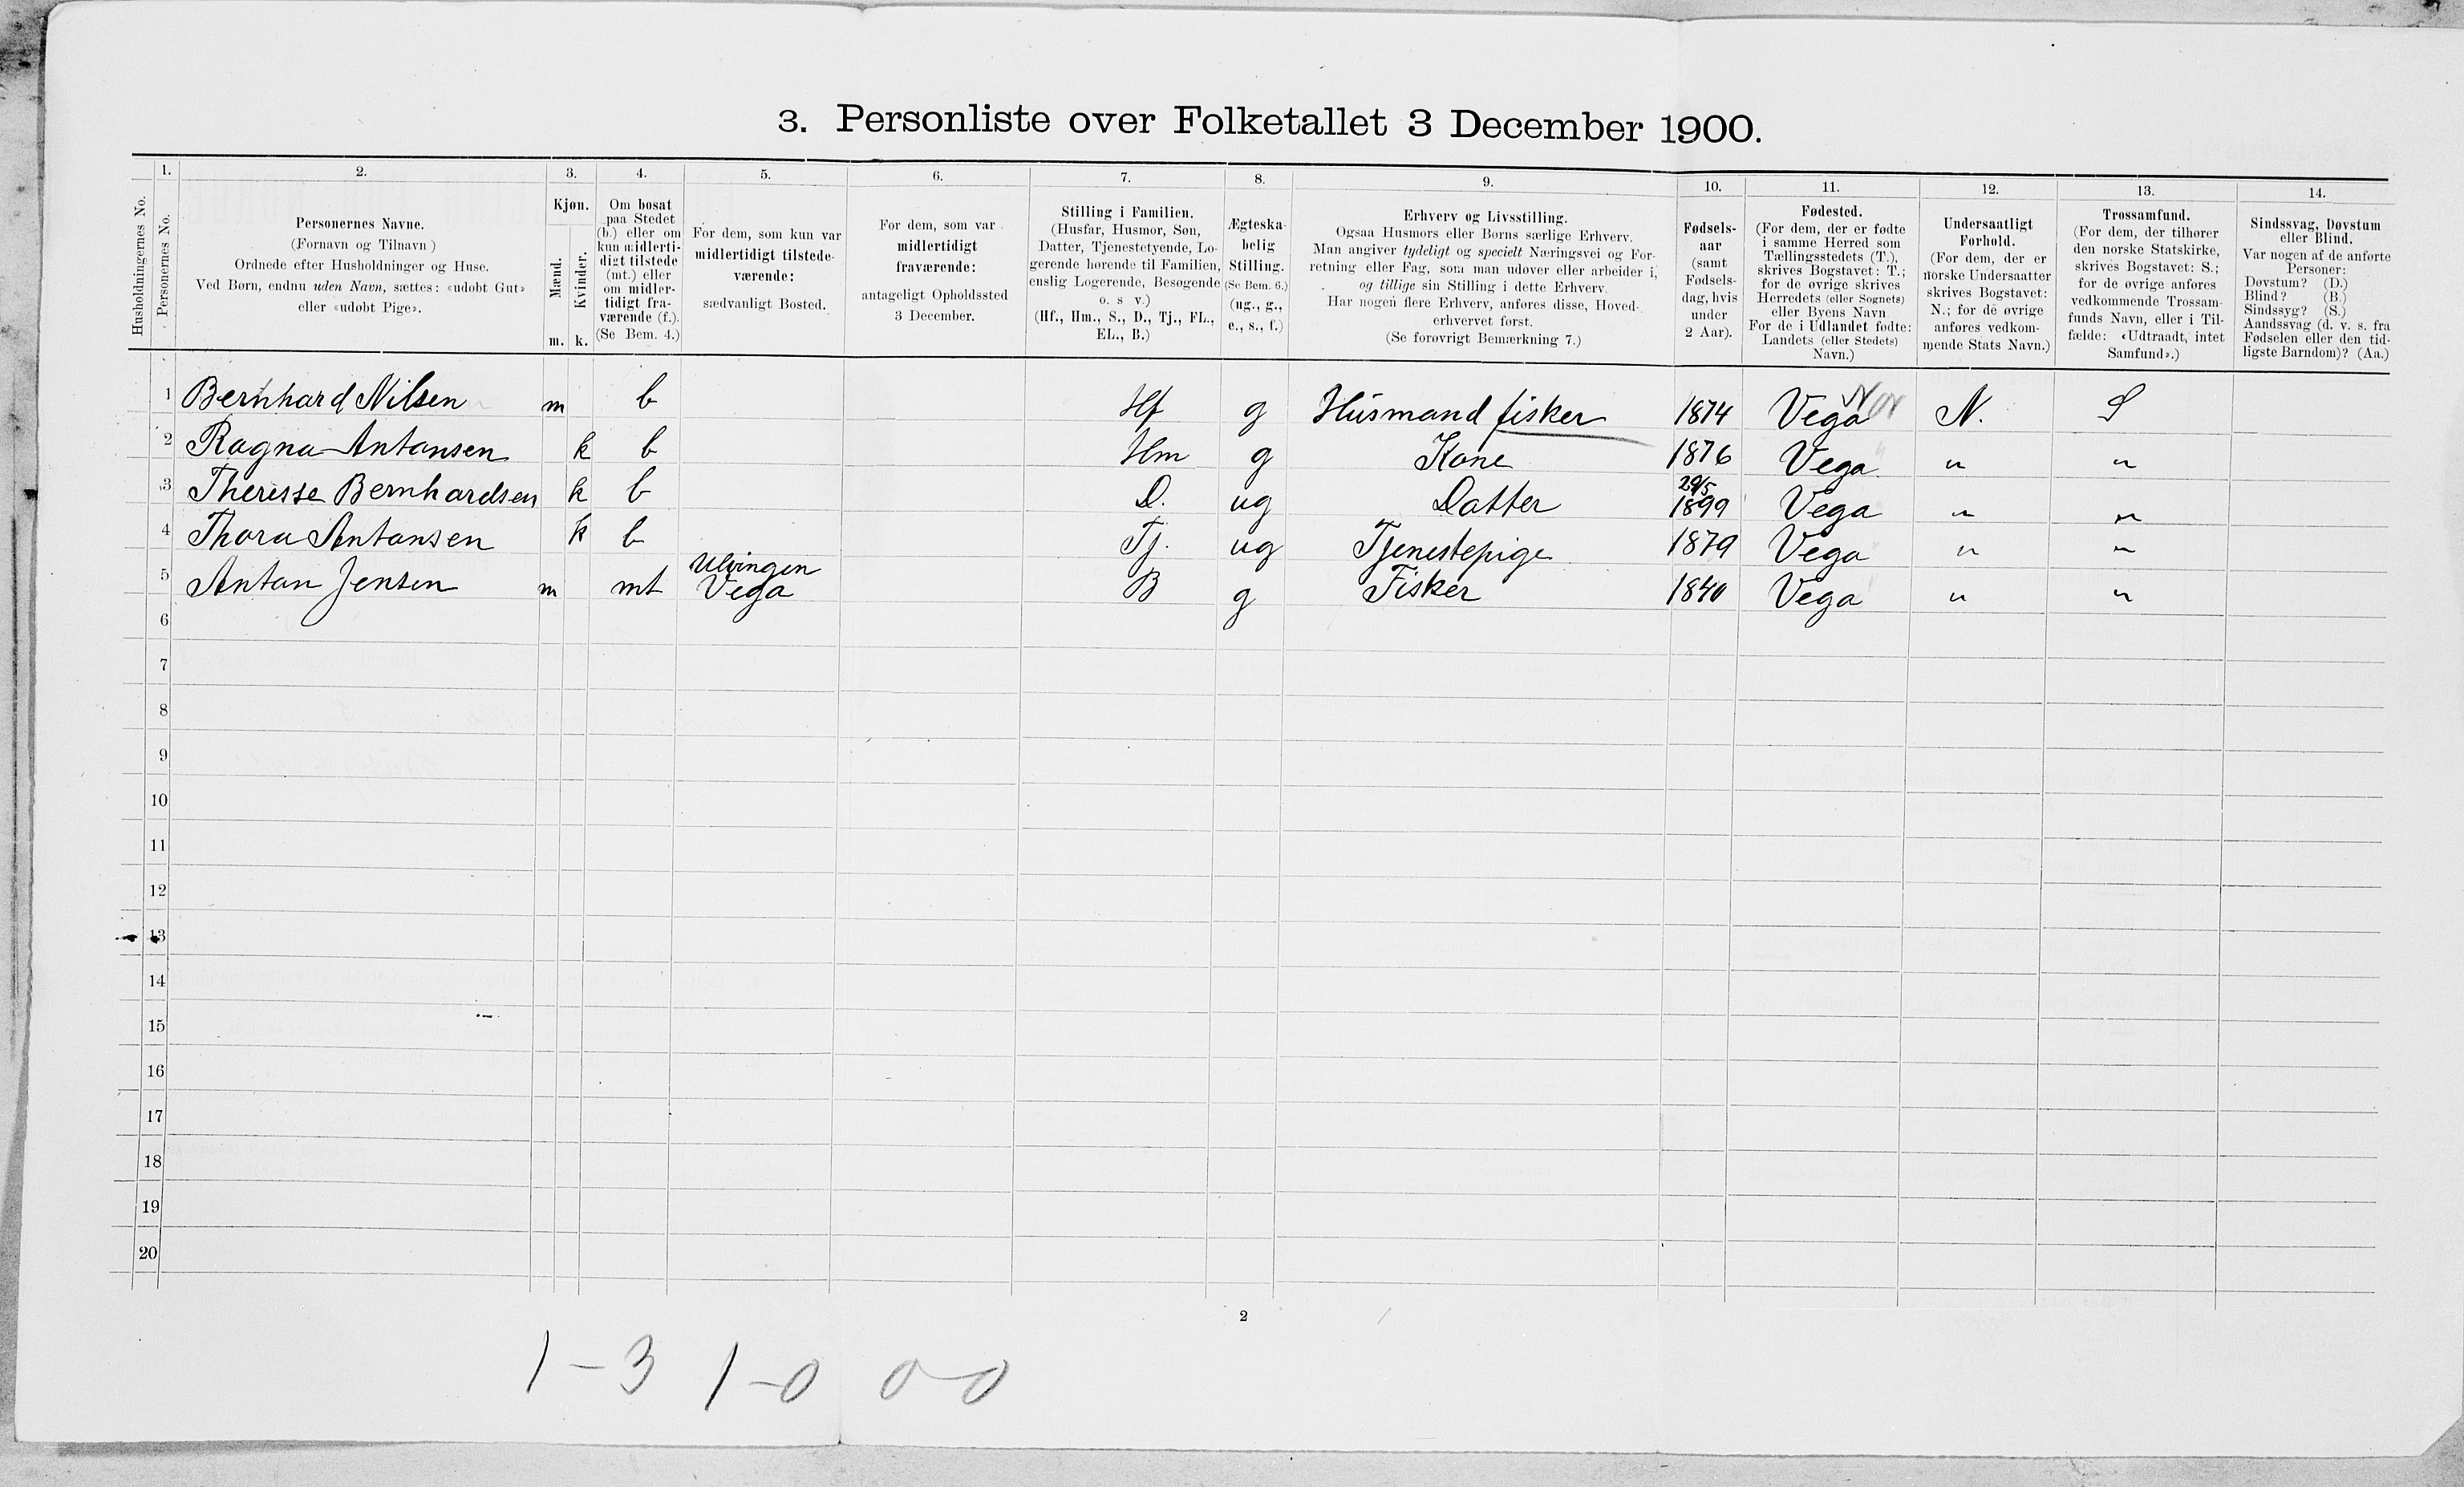 3. Personliste over Folketallet 3 December 1900.
1. 2. 3. 4. 5. 6. 7. 8. 9. 10. 11. 12. 13. 14.
Husholdningernes No.
Personernes No.
Personernes Navne.
(Fornavn og Tilnavn.)
Ordnede efter Husholdninger og Huse.
Ved Børn, endnu uden Navn, sættes: «udøbt Gut»
eller «udøbt Pige».
Kjøn.
Mænd.
Kvinder.
m. k.
Om bosat
paa Stedet
(b.) eller om
kun midlerti-
digt tilstede
(mt.) eller
om midler-
tidigt fra-
værende (f.).
(Se Bem. 4.)
For dem, som kun var
midlertidigt tilstede-
værende:
sædvanligt Bosted.
For dem, som var
midlertidigt
fraværende:
antageligt Opholdssted
3 December.
Stilling i Familien.
(Husfar, Husmor, Søn,
Datter, Tjenestetyende, Lo-
gerende hørende til Familien,
enslig Logerende, Besøgende
o. s v.)
(Hf., Hm., S., D., Tj., FL.,
EL., B.)
Ægteska-
belig
Stilling.
(Se Bem. 6.)
(ug., g.,
e., s., f.)
Erhverv og Livsstilling.
Ogsaa Husmors eller Børns særlige Erhverv.
Man angiver tydeligt og specielt Næringsvei og For-
retning eller Fag, som man udøver eller arbeider i,
og tillige sin Stilling i dette Erhverv.
Har nogen flere Erhverv, anføres disse, Hoved-
erhvervet først.
(Se forøvrigt Bemærkning 7.)
Fødsels-
aar
(samt
Fødsels-
dag, hvis
under
2 Aar).
Fødested.
(For dem, der er fødte
i samme Herred som
Tællingsstedets (T.),
skrives Bogstavet: T.;
for de øvrige skrives
Herredets (eller Sognets)
eller Byens Navn
For de i Udlandet fødte:
Landets (eller Stedets)
Navn.)
Undersaatligt
Forhold.
(For dem, der er
norske Undersaatter
skrives Bogstavet:
N.; for de øvrige
anføres vedkom-
mende Stats Navn.)
Trossamfund.
(For dem, der tilhører
den norske Statskirke,
skrives Bogstavet: S.;
for de øvrige anføres
vedkommende Trossam-
funds Navn, eller i Til-
fælde: «Udtraadt, intet
Samfund».)
Sindssvag, Døvstum
eller Blind.
Var nogen af de anførte
Personer:
Døvstum? (D.)
Blind? (B.)
Sindssyg? (S.)
Aandssvag (d. v. s. fra
Fødselen eller den tid-
ligste Barndom)? (Aa.)
1 Bernhard Nilsen m b Hf g Husmand fisker 1874 Vega N. S
2 Ragna Antonsen k b Hm g Kone 1876 Vega " "
3 Therese Bernhardsen k b D. ug Datter 29/5 1899 Vega " "
4 Thora Antonsen k b Tj. ug Tjenestepige 1879 Vega " "
5 Anton Jensen m mt Ulvingen Vega B g Fisker 1840 Vega " "
6
7
8
9
10
11
12
13
14
15
16
17
18
19
20
2
1-3 1-0 0-0